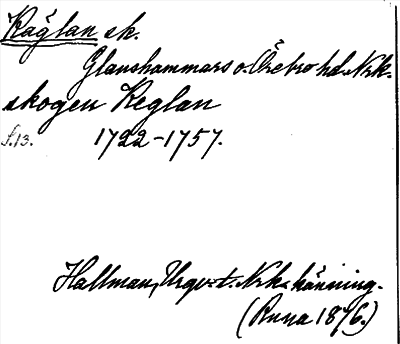 Käglan sk.
Glanshammars o. Örebro hd. Nrk.
skogen Keglan
S. 13. 1722-1757.
Hallman, Urgv. t. Nrk. känning.
(Runa 1876.)